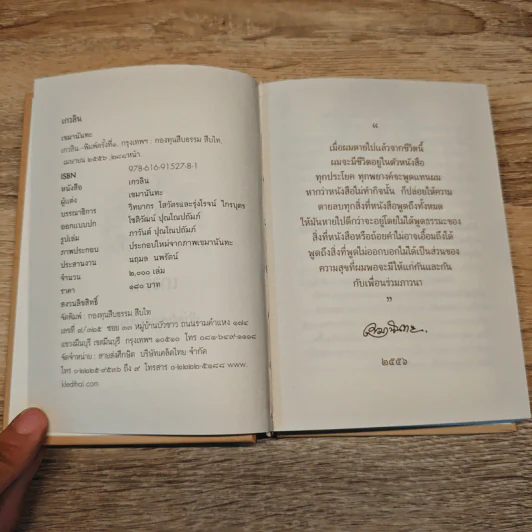 เกวลิน
เขมานันทะ
เกวลิน.-พิมพ์ครั้งที่๑. กรุงเทพฯ : กองทุนสืบธรรม สืบไท,
เมษายน ๒๕๕๖, ๒๘๘หน้า.
ISBN 978-616-91527-8-1
หนังสือ เกวลิน
ผู้แต่ง เขมานันทะ
บรรณาธิการ วิทยากร โสวัตรและรุ่งโรจน์ ไกรบุตร
ออกแบบปก โชติวัฒน์ ปุณโณปถัมภ์
รูปเล่ม ภาวันต์ ปุณโณปถัมภ์
ภาพประกอบ ประกอบใหม่จากภาพเขมานันทะ
ประสานงาน นฤมล นพรัตน์
จำนวน ๒,๐๐๐ เล่ม
ราคา ๑๘๐ บาท
สงวนลิขสิทธิ์
จัดพิมพ์ : กองทุนสืบธรรม สืบไท
เลขที่ ๗/๓๒๕ ซอย ๓๓ หมู่บ้านบัวขาว ถนนรามคำแหง ๑๗๔
แขวงมีนบุรี เขตมีนบุรี กรุงเทพฯ ๑๐๕๑๐ โทร ๐๘๑-๖๔๙-๑๑๑๘
จัดจำหน่าย : สายส่งศึกษิต บริษัทเคล็ดไทย จำกัด
โทร ๐-๒๒๒๕-๙๕๓๖ ถึง ๙ โทรสาร ๐-๒๒๒๒-๕๑๘๘ www.
kledthai.com
“
เมื่อผมตายไปแล้วจากชีวิตนี้
ผมจะมีชีวิตอยู่ในตัวหนังสือ
ทุกประโยค ทุกพยางค์จะพูดแทนผม
หากว่าหนังสือไม่ทำกิจนั้น ก็ปล่อยให้ความ
ตายลบทุกสิ่งที่หนังสือพูดถึงทั้งหมด
ให้มันหายไปดีกว่าจะอยู่โดยไม่ได้พูดธรรมะของ
สิ่งที่หนังสือหรือถ้อยคำไม่อาจเอื้อมถึงได้
พูดถึงสิ่งที่พูดไม่ออกบอกไม่ได้เป็นส่วนของ
ความสุขที่ผมพอจะมีให้แก่กันและกัน
กับเพื่อนร่วมภาวนา
”
เขมานันทะ
๒๕๕๖